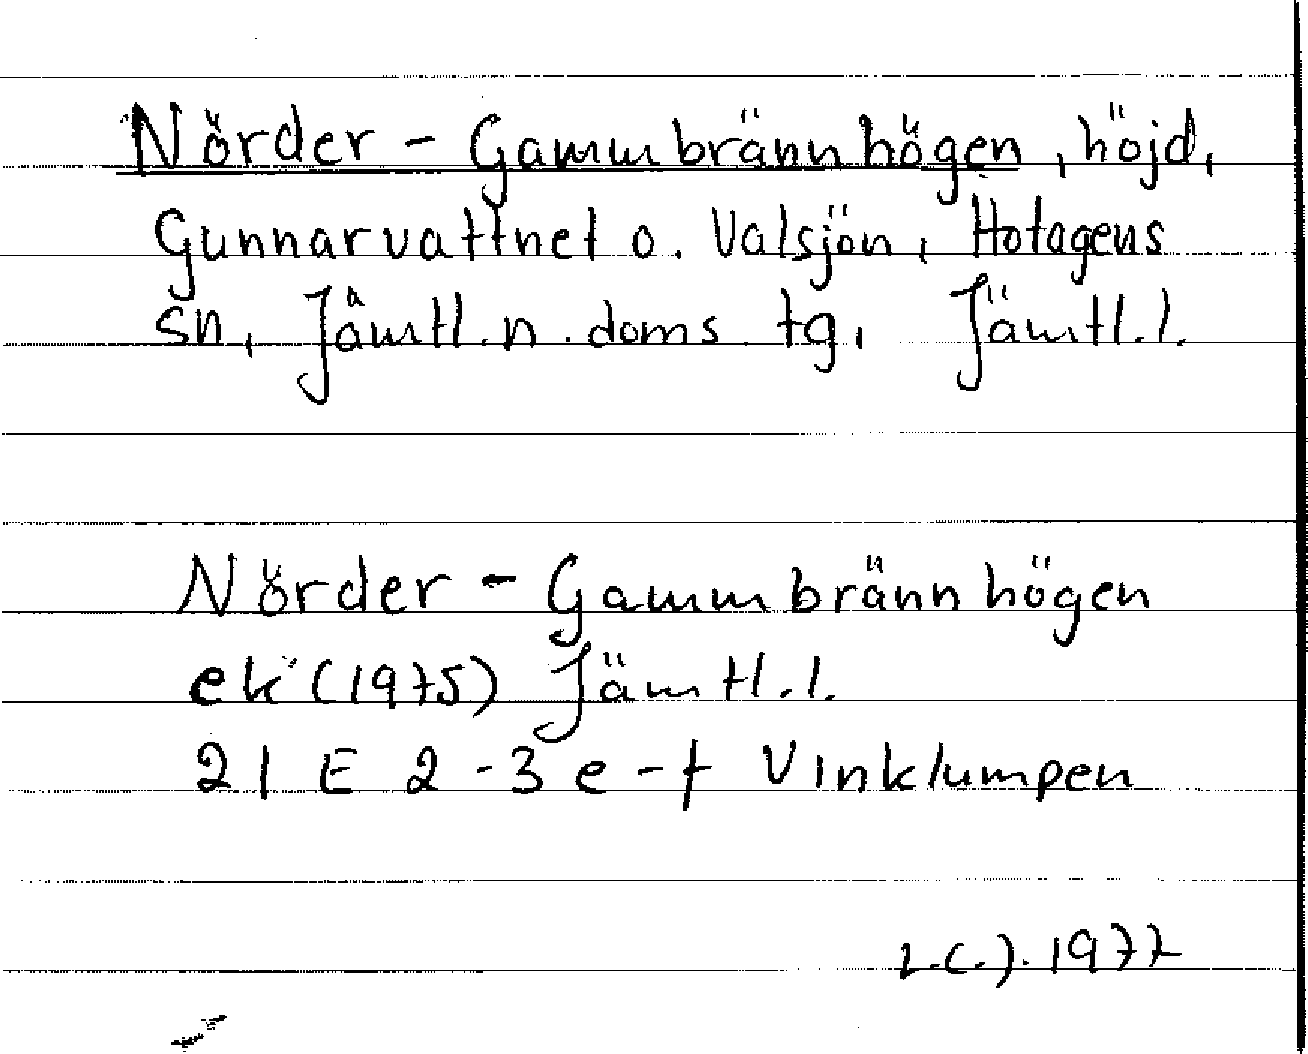 Nörder - Gammbrännhögen, höjd,
Gunnarvattnet o. Valsjön, Hotagens
sn, Jämtl. n. doms. tg, Jämtl. l.
Nörder - Gammbrännhögen
ek (1975) Jämtl. l.
21 E 2 - 3 e - f Vinklumpen
L.C.J. 1977